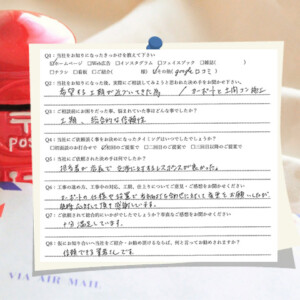 Q1：当社をお知りになったきっかけを教えて下さい
☑ホームページ □Web広告 □インスタグラム □フェイスブック □雑誌( )
□チラシ □看板 □ご紹介( 様) ☑その他( google口コミ )
Q2：当社をお知りになった後、実際にご相談してみようと思われた決め手をお聞かせ下さい。
希望する工期が近づいてきた為 / カーポートと土間コン施工
Q3：ご相談前にお困りだった事、悩まれていた事はどんな事でしたか？
工期、総合的な信頼性
Q4：当社にご依頼頂く事をお決めになったタイミングはいつでしたでしょうか？
□初回面談のお打合せで □初回のご提案で □二回目以降のご提案で
Q5：当社に依頼された決め手は何でしたか？
担当者が 全体的にするレスポンスが良かった。
Q6：工事の進め方、工事中の対応、工期、仕上りについてご意見・ご感想をお聞かせください
カーポートの仕様で設置で 変更をお願いしたが、
対応して頂き感謝しています。
Q7：ご依頼されて総合的にいかがでしたでしょうか？率直なご感想をお聞かせください
十分満足しています。
Q8：私にお知り合いへ当社をご紹介・お勧め頂けるならば、何と言ってお勧めされますか？
信頼できる業者さんです。
VIA AIR MAIL
POS